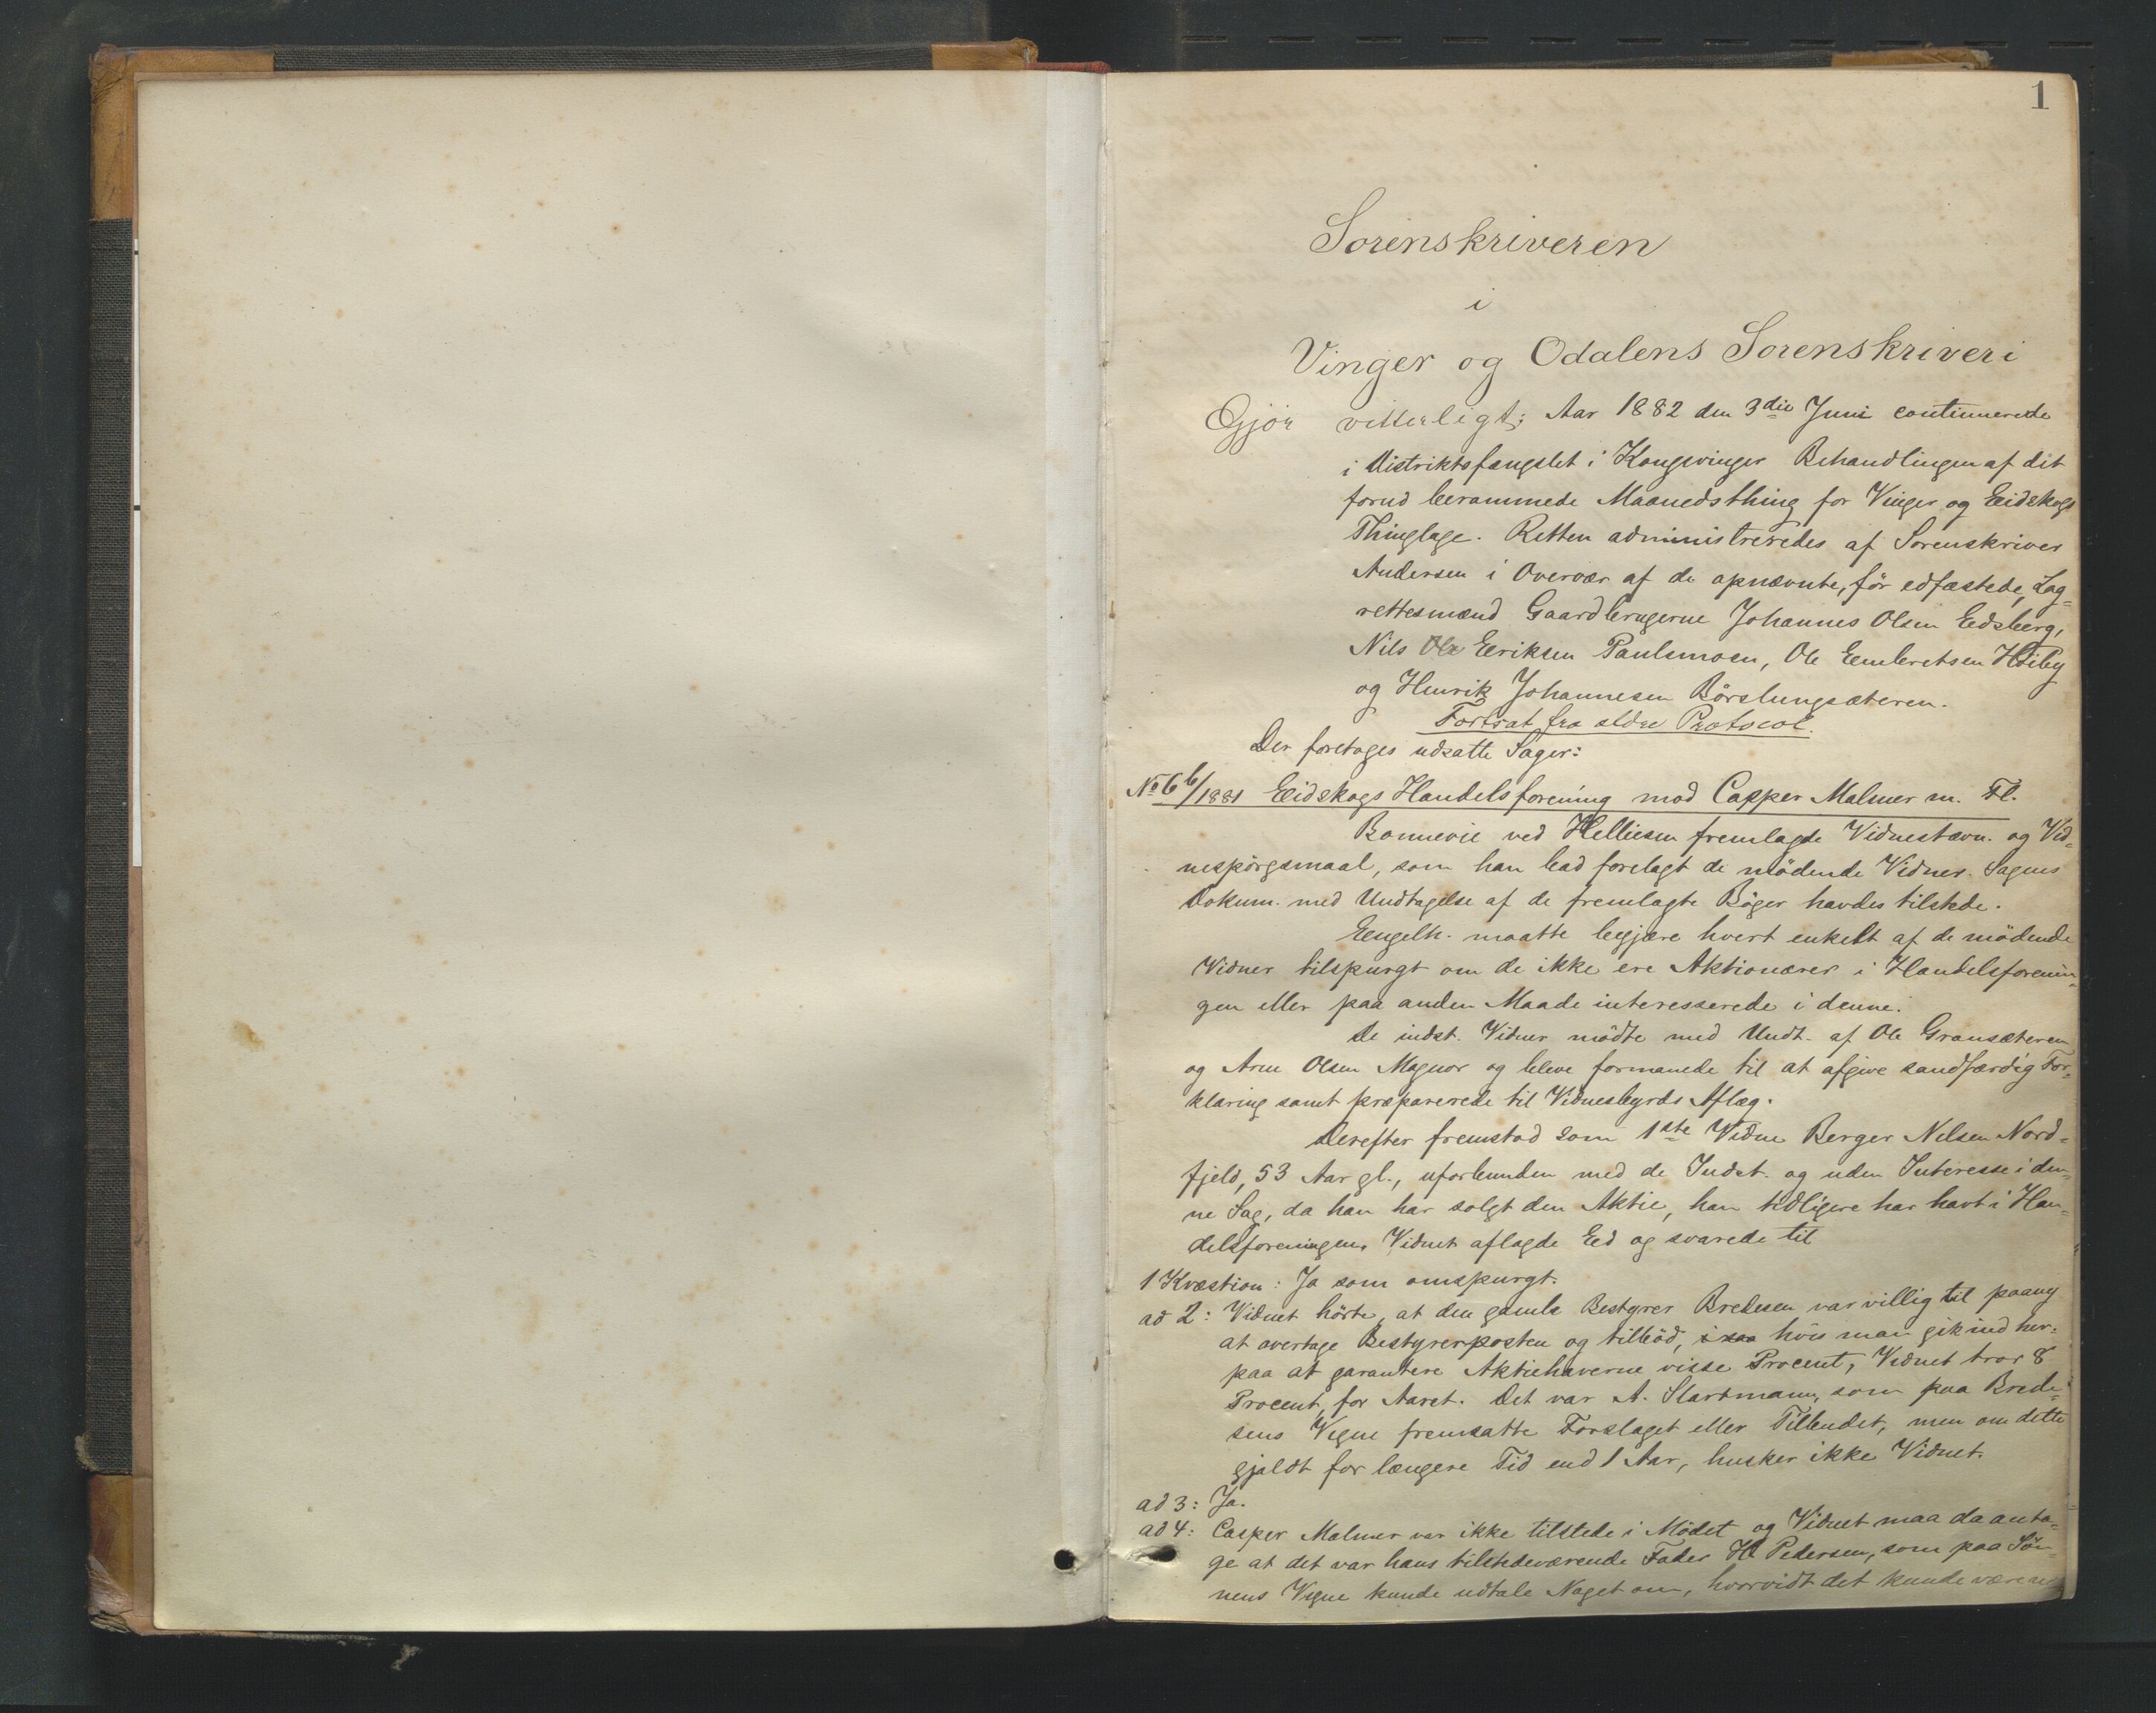 1
Sorenskriveren
i
Vinger og Odalens Sorenskriveri
Gjør vitterligt: Aar 1882 den 3die Juni continuerede
i Distriktsfængslet i Kongsvinger Behandlingen af det
forud berammede Maanedsthing for Vinger og Eidskogs
Thinglage. Retten administreredes af Sorenskriver
Andersen i Overvær af de opnævnte, før edfæstede, Lag=
rettesmænd Gaardbrugerne Johannes Olsen Eidsberg,
Nils Ole Eriksen Paulsmoen, Ole Embretsen Høiby
og Henrik Johannesen Børslungsæteren.
Fortsat fra ældre Protocol.
Der foretages udsatte Sager:
No 6 b/1881 Eidskogs Handelsforening mod Casper Malmer m. Fl.
Bonnevie ved Helliesen fremlagde Vidnestævn. og Vid=
nespørgsmaal, som han bad forelagt de mødende Vidner. Sagens
Dokum. med Undtagelse af de fremlagte Bøger havdes tilstede.
Engelh. maatte begjære hvert enkelt af de mødende
Vidner tilspurgt om de ikke ere Aktionærer i Handelsforenin=
gen eller paa anden Maade interesserede i denne.
De indst. Vidner mødte med Undt. af Ole Gransæteren
og Arne Olsen Magnor og bleve formanede til at afgive sandfærdig For=
klaring samt præparerede til Vidnesbyrds Aflæg.
Derefter fremstod som 1ste Vidne Berger Nilsen Nord=
fjeld, 53 Aar gl., uforbunden med de Indst. og uden Interesse i den=
ne Sag, da han har solgt den Aktie, han tidligere har havt i Han=
delsforeningen. Vidnet aflagde Ed og svarede til
1 Kvæstion: Ja som omspurgt.
ad 2: Vidnet hørte, at den gamle Bestyrer Bredesen var villig til paany
at overtage Bestyrerposten og tilbød, i saa hvis man gik ind her=
paa at garantere Aktiehaverne visse Procent, Vidnet tror 8
Procent, for Aaret. Det var A. Startmann, som paa Brede=
sens Vegne fremsatte Forslaget eller Tilbudet, men om dette
gjaldt for længere Tid end 1 Aar, husker ikke Vidnet.
ad 3: Ja.
ad 4: Casper Malmer var ikke tilstede i Mødet og Vidnet maa da anta=
ge at det var hans tilstedeværende Fader H. Pedersen, som paa Søn=
nens Vegne kunde udtale Noget om, hvorvidt det kunde være